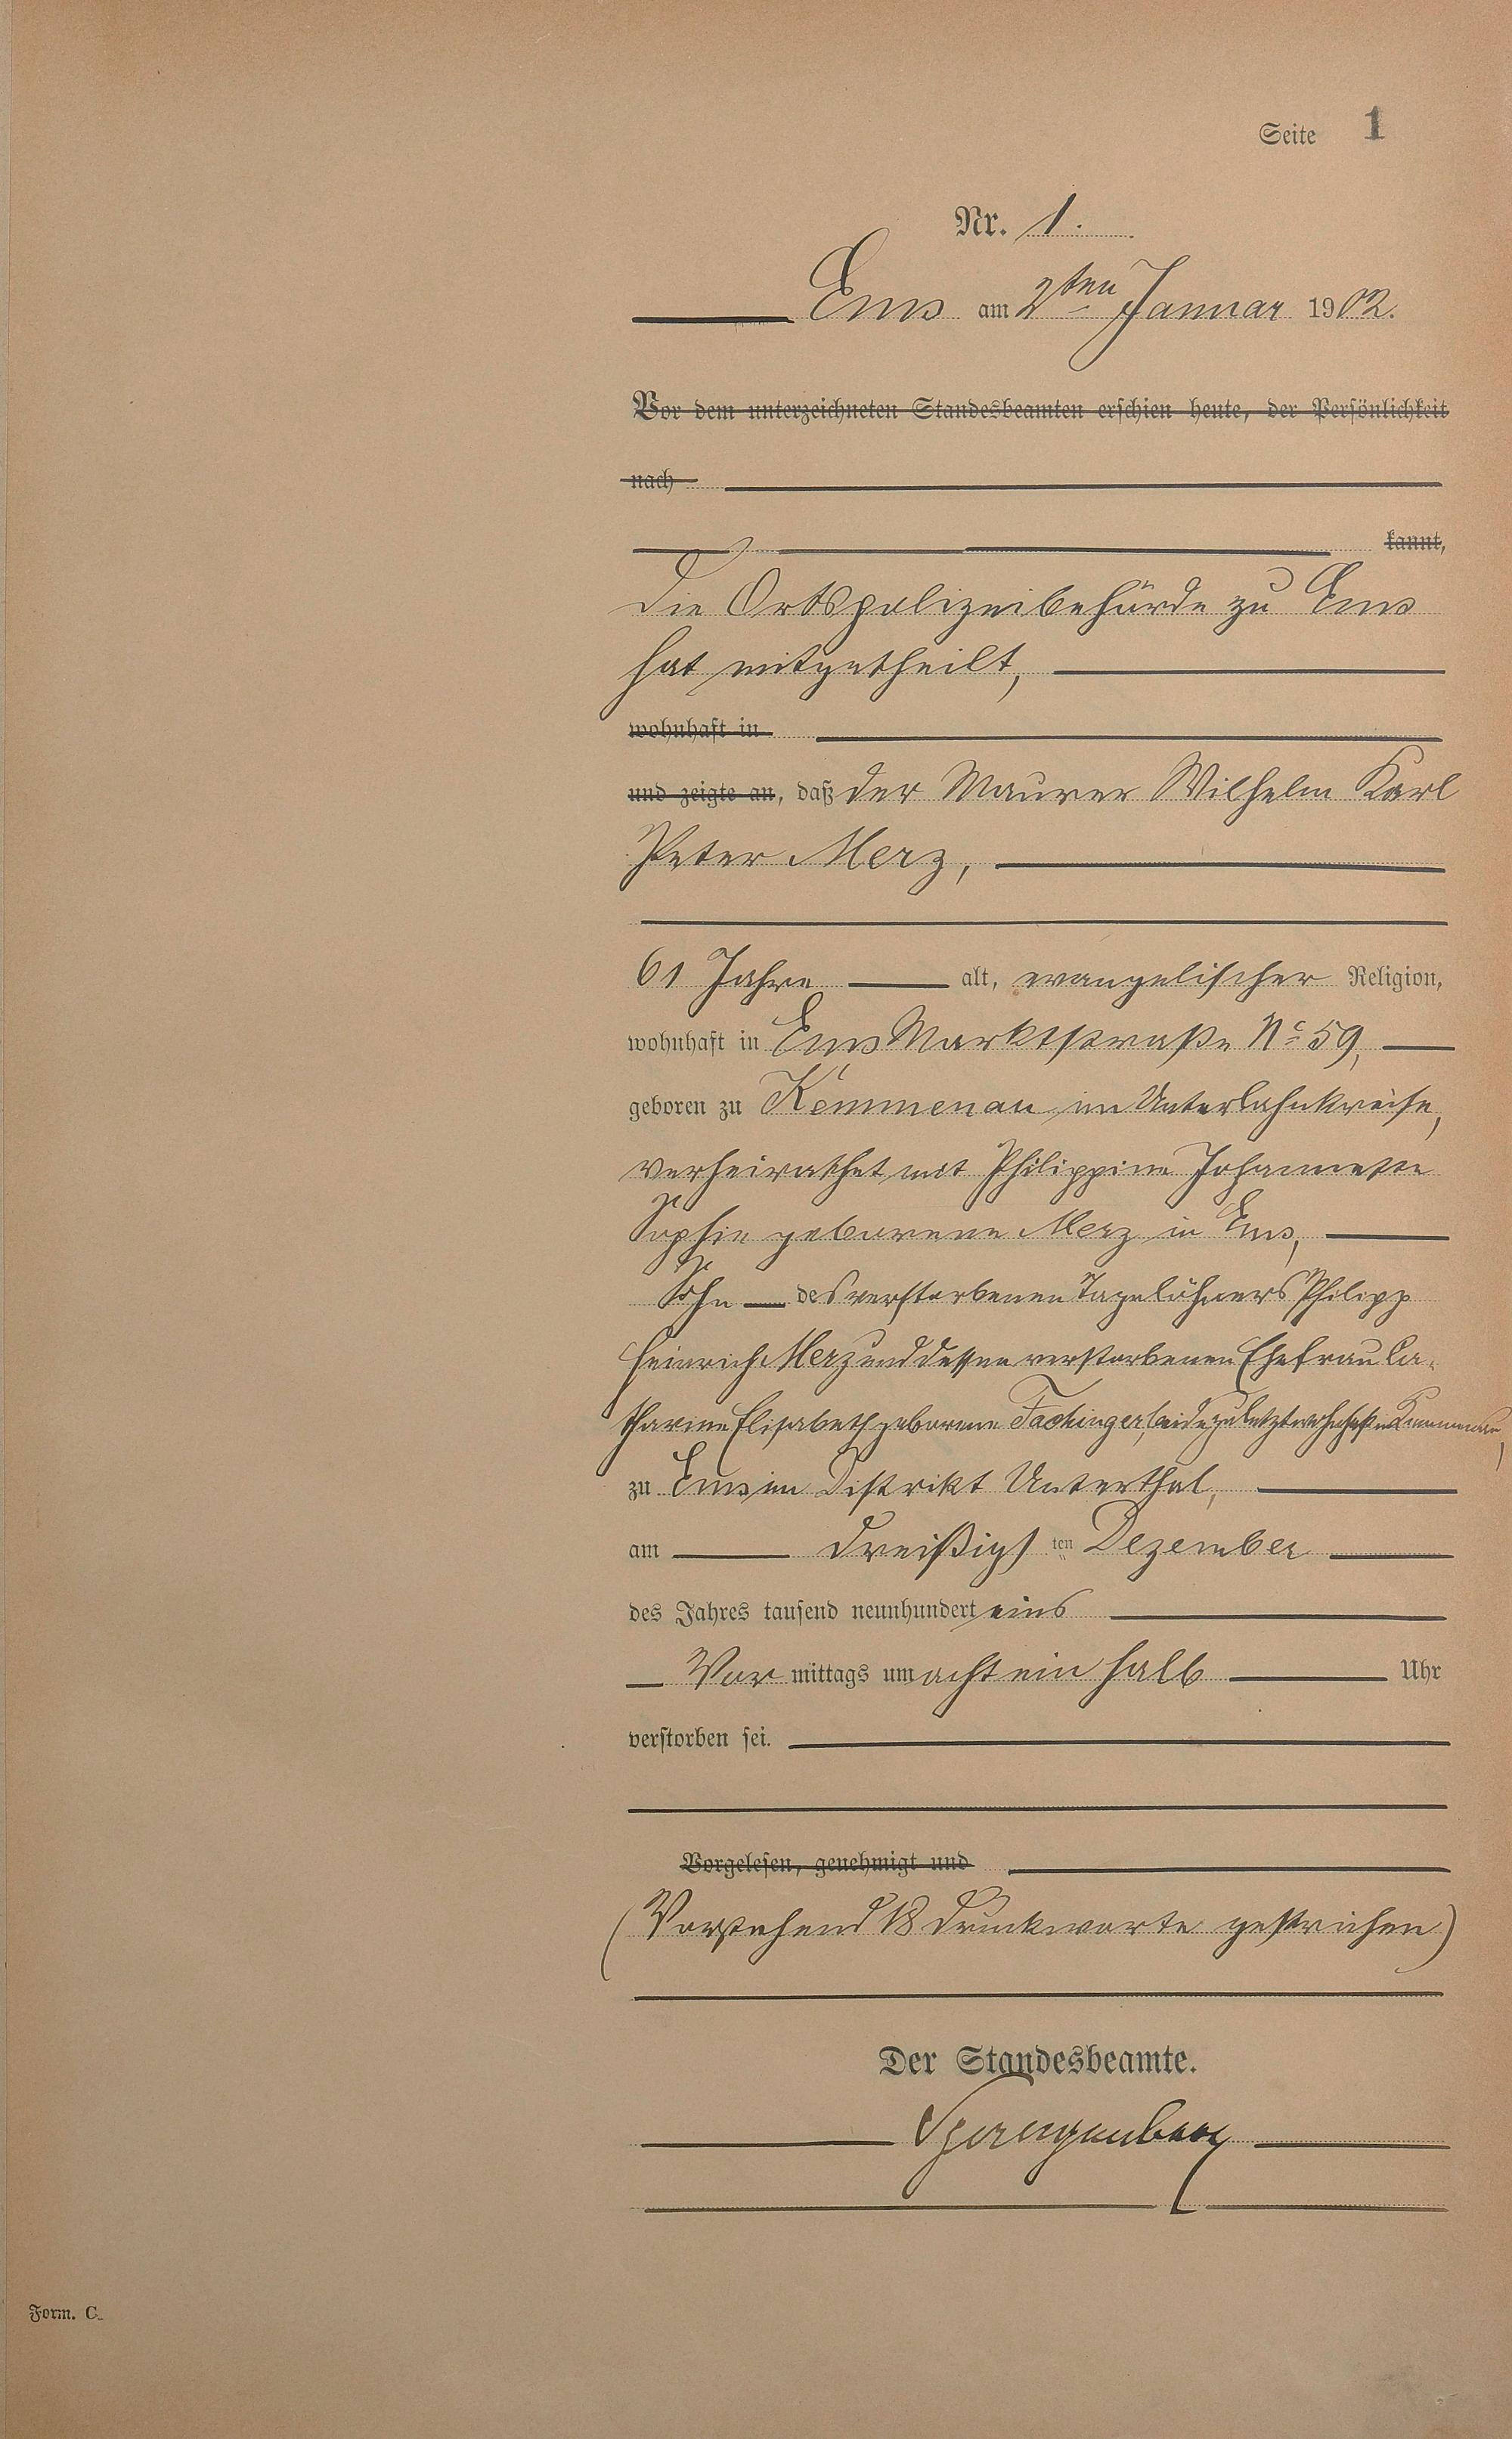 Seite 1
Nr. 1.
Ems am 2ten Januar 1902.
Vor dem unterzeichneten Standesbeamten erschien heute, der Persönlichkeit
nach
kannt,
die Ortspolizeibehörde zu Ems
hat mitgetheilt,
wohnhaft in
und zeigte an, daß der Maurer Wilhelm Karl
Peter Merz,
61 Jahre alt, evangelischer Religion,
wohnhaft in Ems Marktstraße No 59,
geboren zu Kemmenau im Unterlahnkreise,
verheirathet mit Philippine Johannette
Sophie geborene Merz in Ems,
Sohn des verstorbenen Tagelöhners Philipp
Heinrich Merz und dessen verstorbenen Ehefrau Ca-
tharine Elisabeth geborene Fachinger, beide zuletzt wohnhaft in Kemmenau,
zu Ems im Distrikt Unterthal,
am dreißigsten Dezember
des Jahres tausend neunhundert eins
Vor mittags um acht ein halb Uhr
verstorben sei.
Vorgelesen, genehmigt und
(Vorstehend 18 Druckworte gestrichen)
Der Standesbeamte.
Form. C.